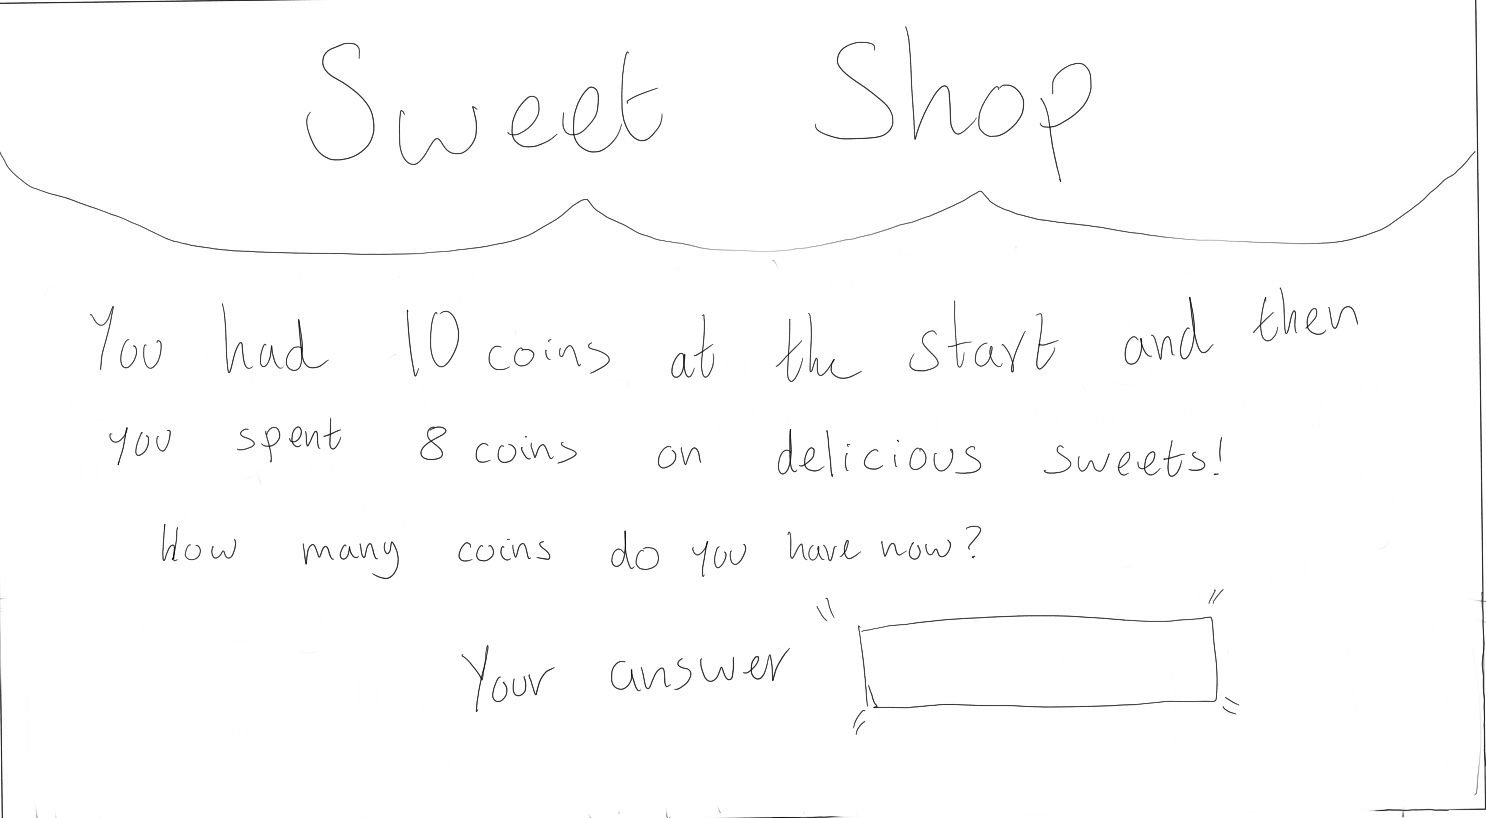 Sweet Shop
You had 10 coins at the start and then
you spent 8 coins on delicious sweets!
How many coins do you have now?
Your answer